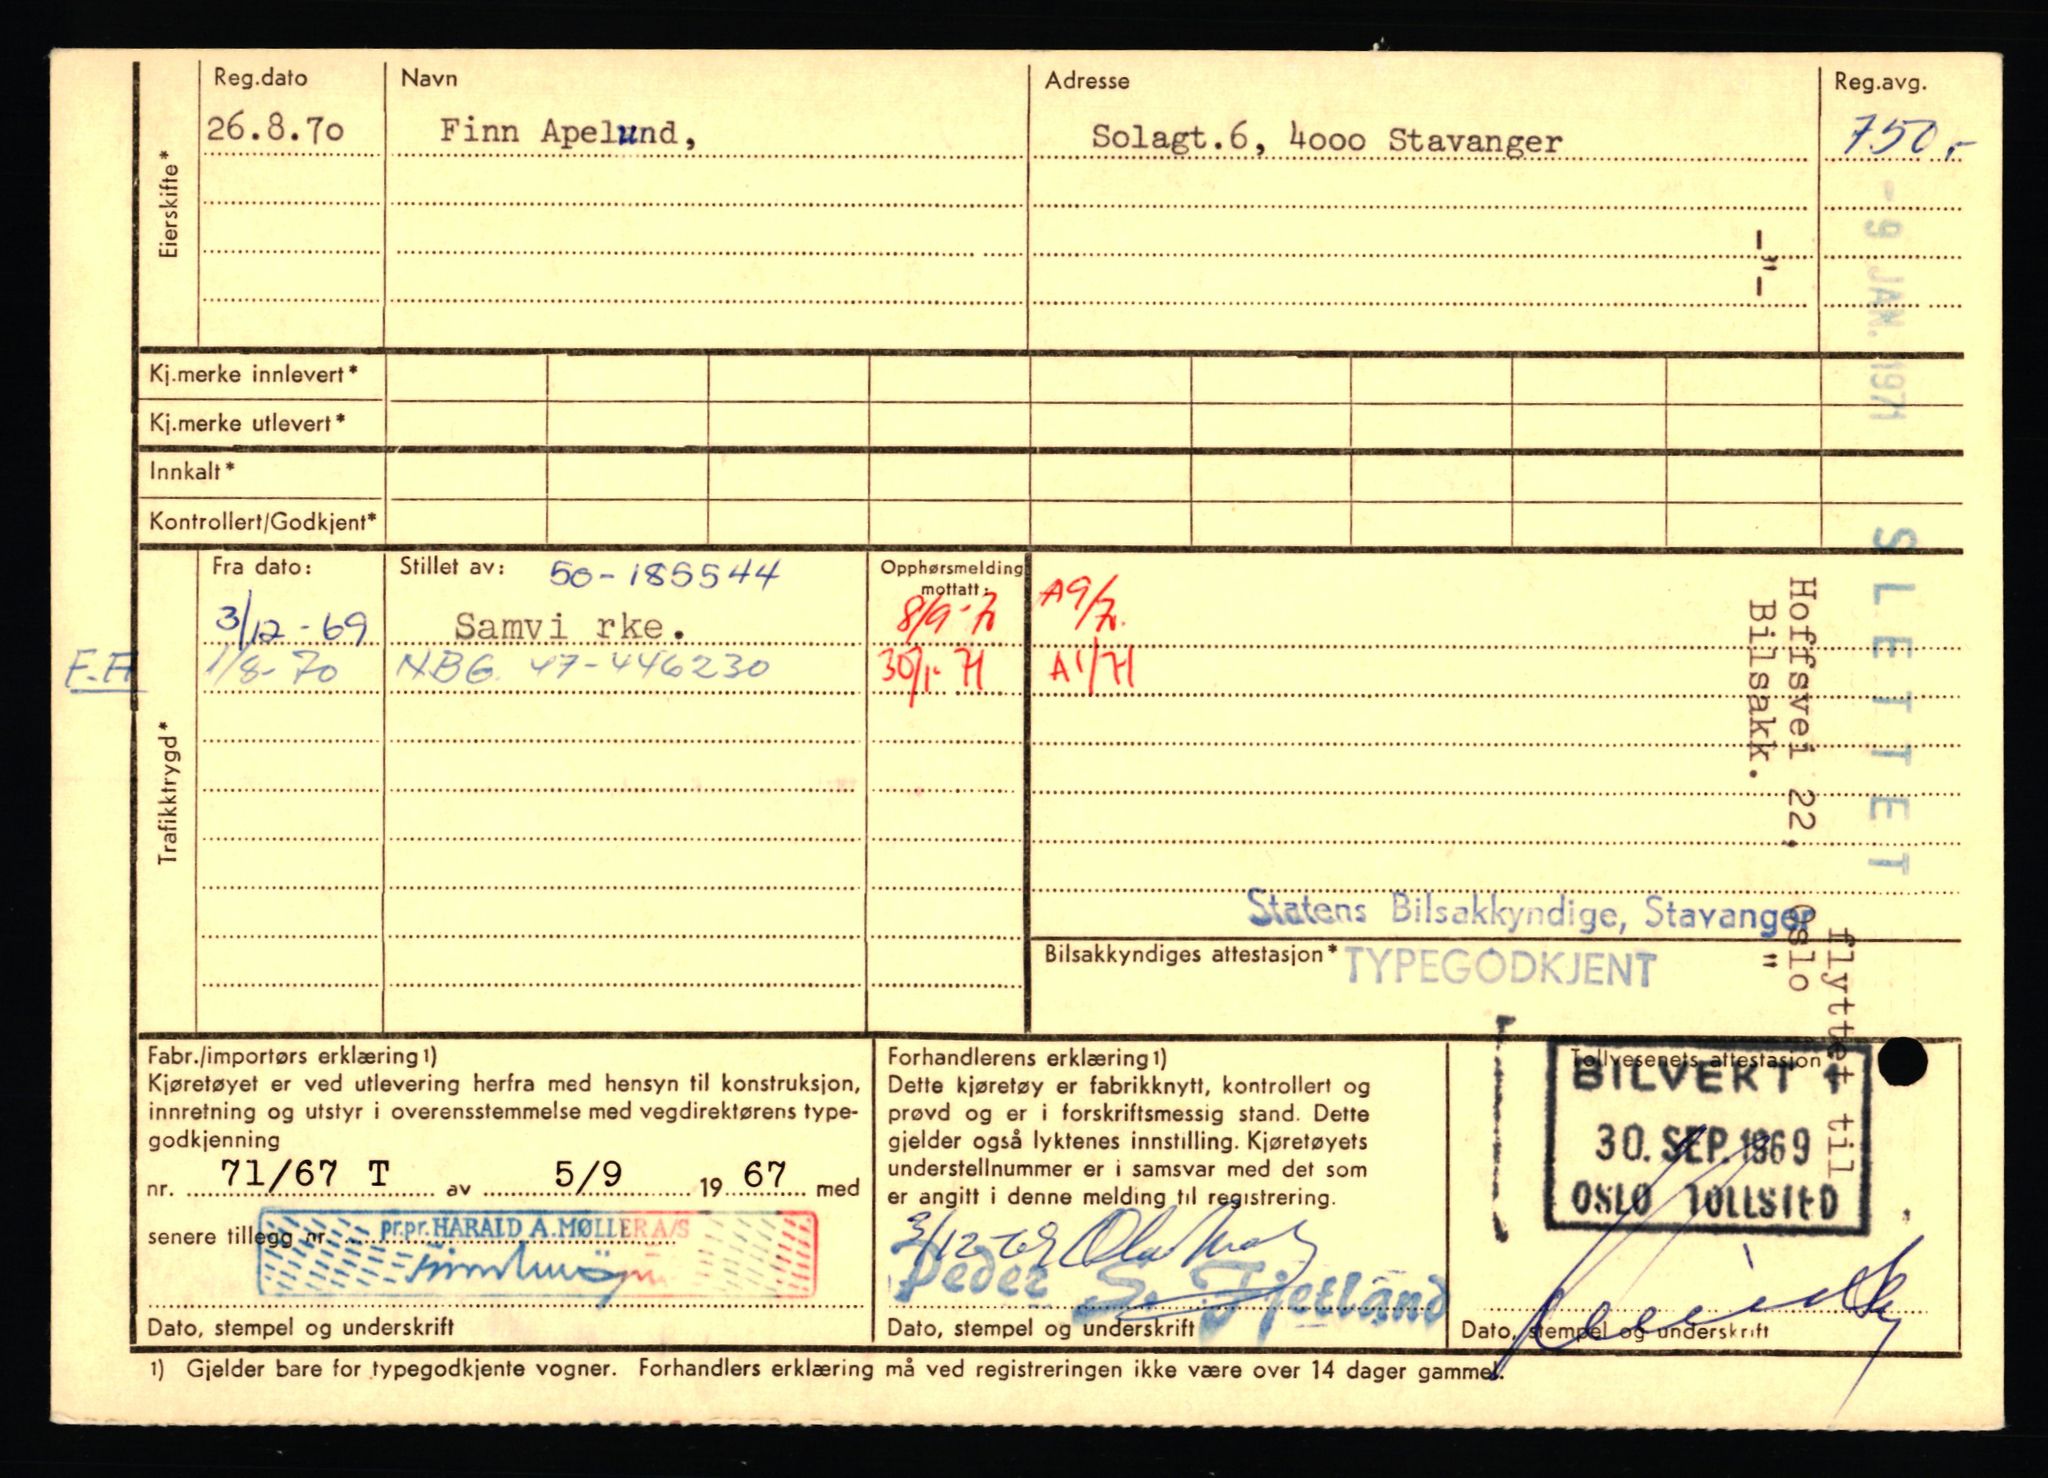 Reg.dato Navn Adresse Reg.avg.
26.8.70 Finn Apelund, Solagt.6, 4000 Stavanger 750,-
Eierskifte*
-"-
-9 JAN. 1971
Kj.merke innlevert*
Kj.merke utlevert*
Innkalt*
Kontrollert/Godkjent*
Fra dato: Stillet av: 50-185544 Opphørsmelding mottatt:
3/12-69 Samvi rke. 8/9-70 A9/70.
F.F. 1/8-70 NBG. 47-446230 30/1-71 A1/71
Trafikktrygd*
SLETTET
flyttet til
Hoffsvei 22, Oslo
Bilsakk. "
Statens Bilsakkyndige, Stavanger
Bilsakkyndiges attestasjon* TYPEGODKJENT
Fabr./importørs erklæring 1)
Kjøretøyet er ved utlevering herfra med hensyn til konstruksjon,
innretning og utstyr i overensstemmelse med vegdirektørens type-
godkjenning
nr. 71/67 T av 5/9 19 67 med
senere tillegg nr.
pr.pr. HARALD A. MØLLER A/S
Dato, stempel og underskrift
Forhandlerens erklæring 1)
Dette kjøretøy er fabrikknytt, kontrollert og
prøvd og er i forskriftsmessig stand. Dette
gjelder også lyktenes innstilling. Kjøretøyets
understellnummer er i samsvar med det som
er angitt i denne melding til registrering.
3/12-69
Peder S. Fjetland
Dato, stempel og underskrift
Tollvesenets attestasjon
BILVEKT 1
30. SEP. 1969
OSLO TOLLSTED
Dato, stempel og underskrift
1) Gjelder bare for typegodkjente vogner. Forhandlers erklæring må ved registreringen ikke være over 14 dager gammel.